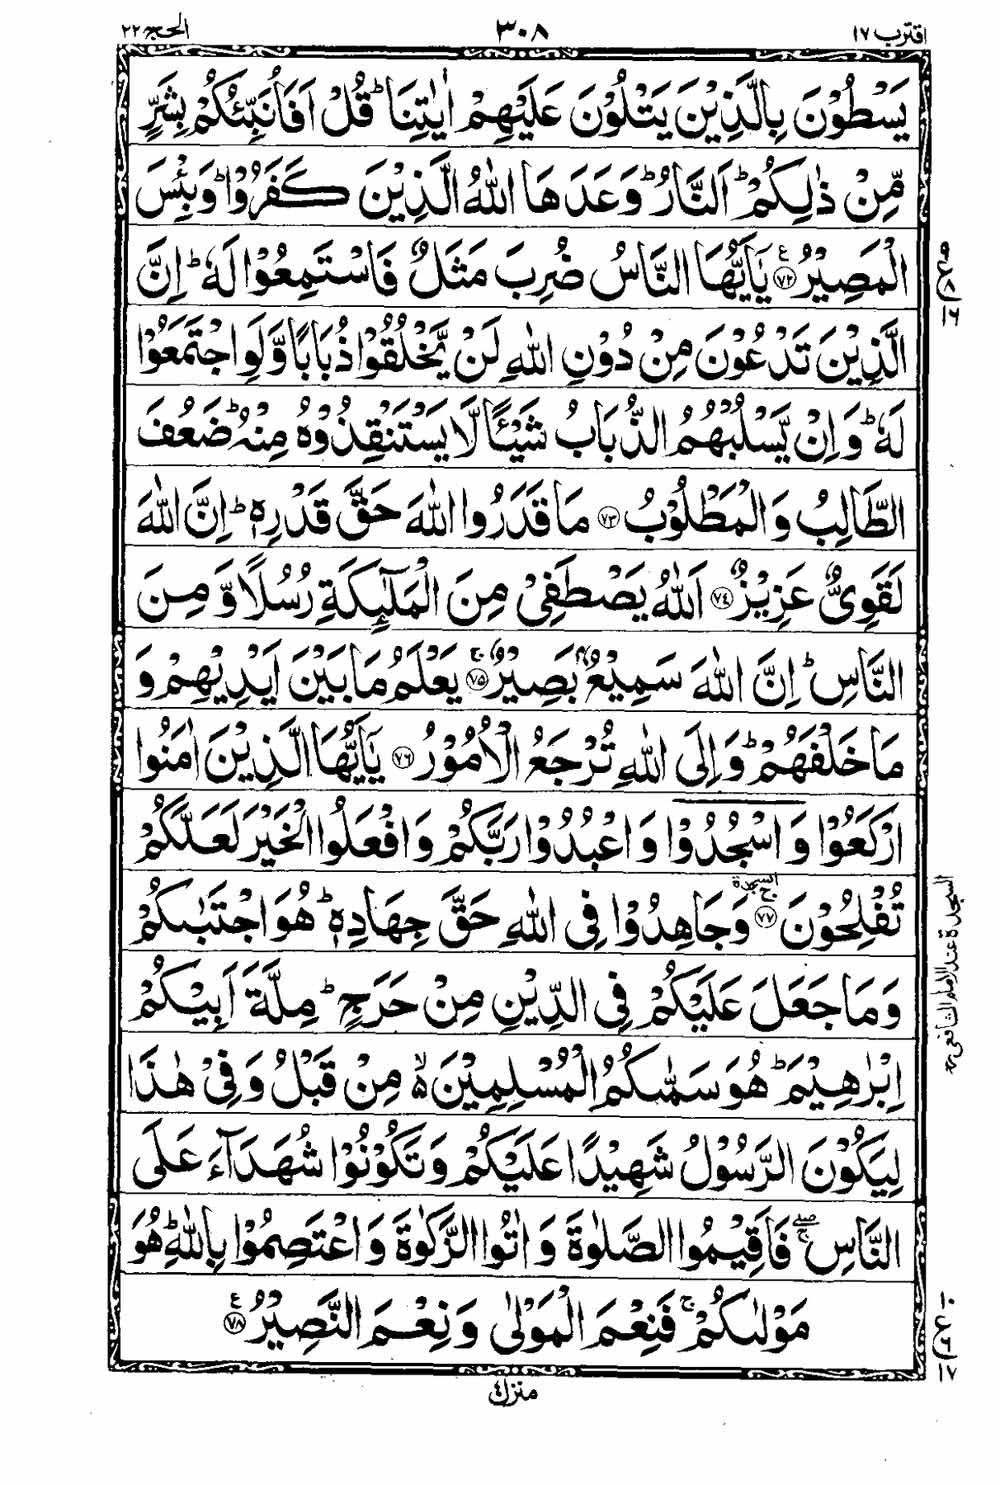 اقترب ١٧
٣٠٨
الحج ٢٢
يَسْطُوْنَ بِالَّذِيْنَ يَتْلُوْنَ عَلَيْهِمْ اٰيٰتِنَا ؕ قُلْ اَفَاُنَبِّئُكُمْ بِشَرٍّ
مِّنْ ذٰلِكُمْ ؕ اَلنَّارُ ؕ وَعَدَهَا اللّٰهُ الَّذِيْنَ كَفَرُوْا ؕ وَبِئْسَ
الْمَصِيْرُ ﴿٧٢﴾ ع يٰۤاَيُّهَا النَّاسُ ضُرِبَ مَثَلٌ فَاسْتَمِعُوْا لَهٗ ؕ اِنَّ
الَّذِيْنَ تَدْعُوْنَ مِنْ دُوْنِ اللّٰهِ لَنْ يَّخْلُقُوْا ذُبَابًا وَّلَوِ اجْتَمَعُوْا
لَهٗ ؕ وَاِنْ يَّسْلُبْهُمُ الذُّبَابُ شَيْـًٔا لَّا يَسْتَنْقِذُوْهُ مِنْهُ ؕ ضَعُفَ
الطَّالِبُ وَالْمَطْلُوْبُ ﴿٧٣﴾ مَا قَدَرُوا اللّٰهَ حَقَّ قَدْرِهٖ ؕ اِنَّ اللّٰهَ
لَقَوِيٌّ عَزِيْزٌ ﴿٧٤﴾ اَللّٰهُ يَصْطَفِيْ مِنَ الْمَلٰٓئِكَةِ رُسُلًا وَّ مِنَ
النَّاسِ ؕ اِنَّ اللّٰهَ سَمِيْعٌۢ بَصِيْرٌ ﴿٧٥﴾ ج يَعْلَمُ مَا بَيْنَ اَيْدِيْهِمْ وَ
مَا خَلْفَهُمْ ؕ وَاِلَى اللّٰهِ تُرْجَعُ الْاُمُوْرُ ﴿٧٦﴾ يٰۤاَيُّهَا الَّذِيْنَ اٰمَنُوا
ارْكَعُوْا وَاسْجُدُوْا وَاعْبُدُوْا رَبَّكُمْ وَافْعَلُوا الْخَيْرَ لَعَلَّكُمْ
تُفْلِحُوْنَ ﴿٧٧﴾ ج السجدة وَجَاهِدُوْا فِي اللّٰهِ حَقَّ جِهَادِهٖ ؕ هُوَ اجْتَبٰىكُمْ
وَمَا جَعَلَ عَلَيْكُمْ فِي الدِّيْنِ مِنْ حَرَجٍ ؕ مِلَّةَ اَبِيْكُمْ
اِبْرٰهِيْمَ ؕ هُوَ سَمّٰىكُمُ الْمُسْلِمِيْنَ ۙ۬ مِنْ قَبْلُ وَفِيْ هٰذَا
لِيَكُوْنَ الرَّسُوْلُ شَهِيْدًا عَلَيْكُمْ وَتَكُوْنُوْا شُهَدَآءَ عَلَى
النَّاسِ ۖۚ فَاَقِيْمُوا الصَّلٰوةَ وَاٰتُوا الزَّكٰوةَ وَاعْتَصِمُوْا بِاللّٰهِ ؕ هُوَ
مَوْلٰىكُمْ ۚ فَنِعْمَ الْمَوْلٰى وَنِعْمَ النَّصِيْرُ ﴿٧٨﴾ ع
ع ٨ ١٦
السجدة عند الامام الشافعي
١٠ ع ٦ ١٧
منزل ٤